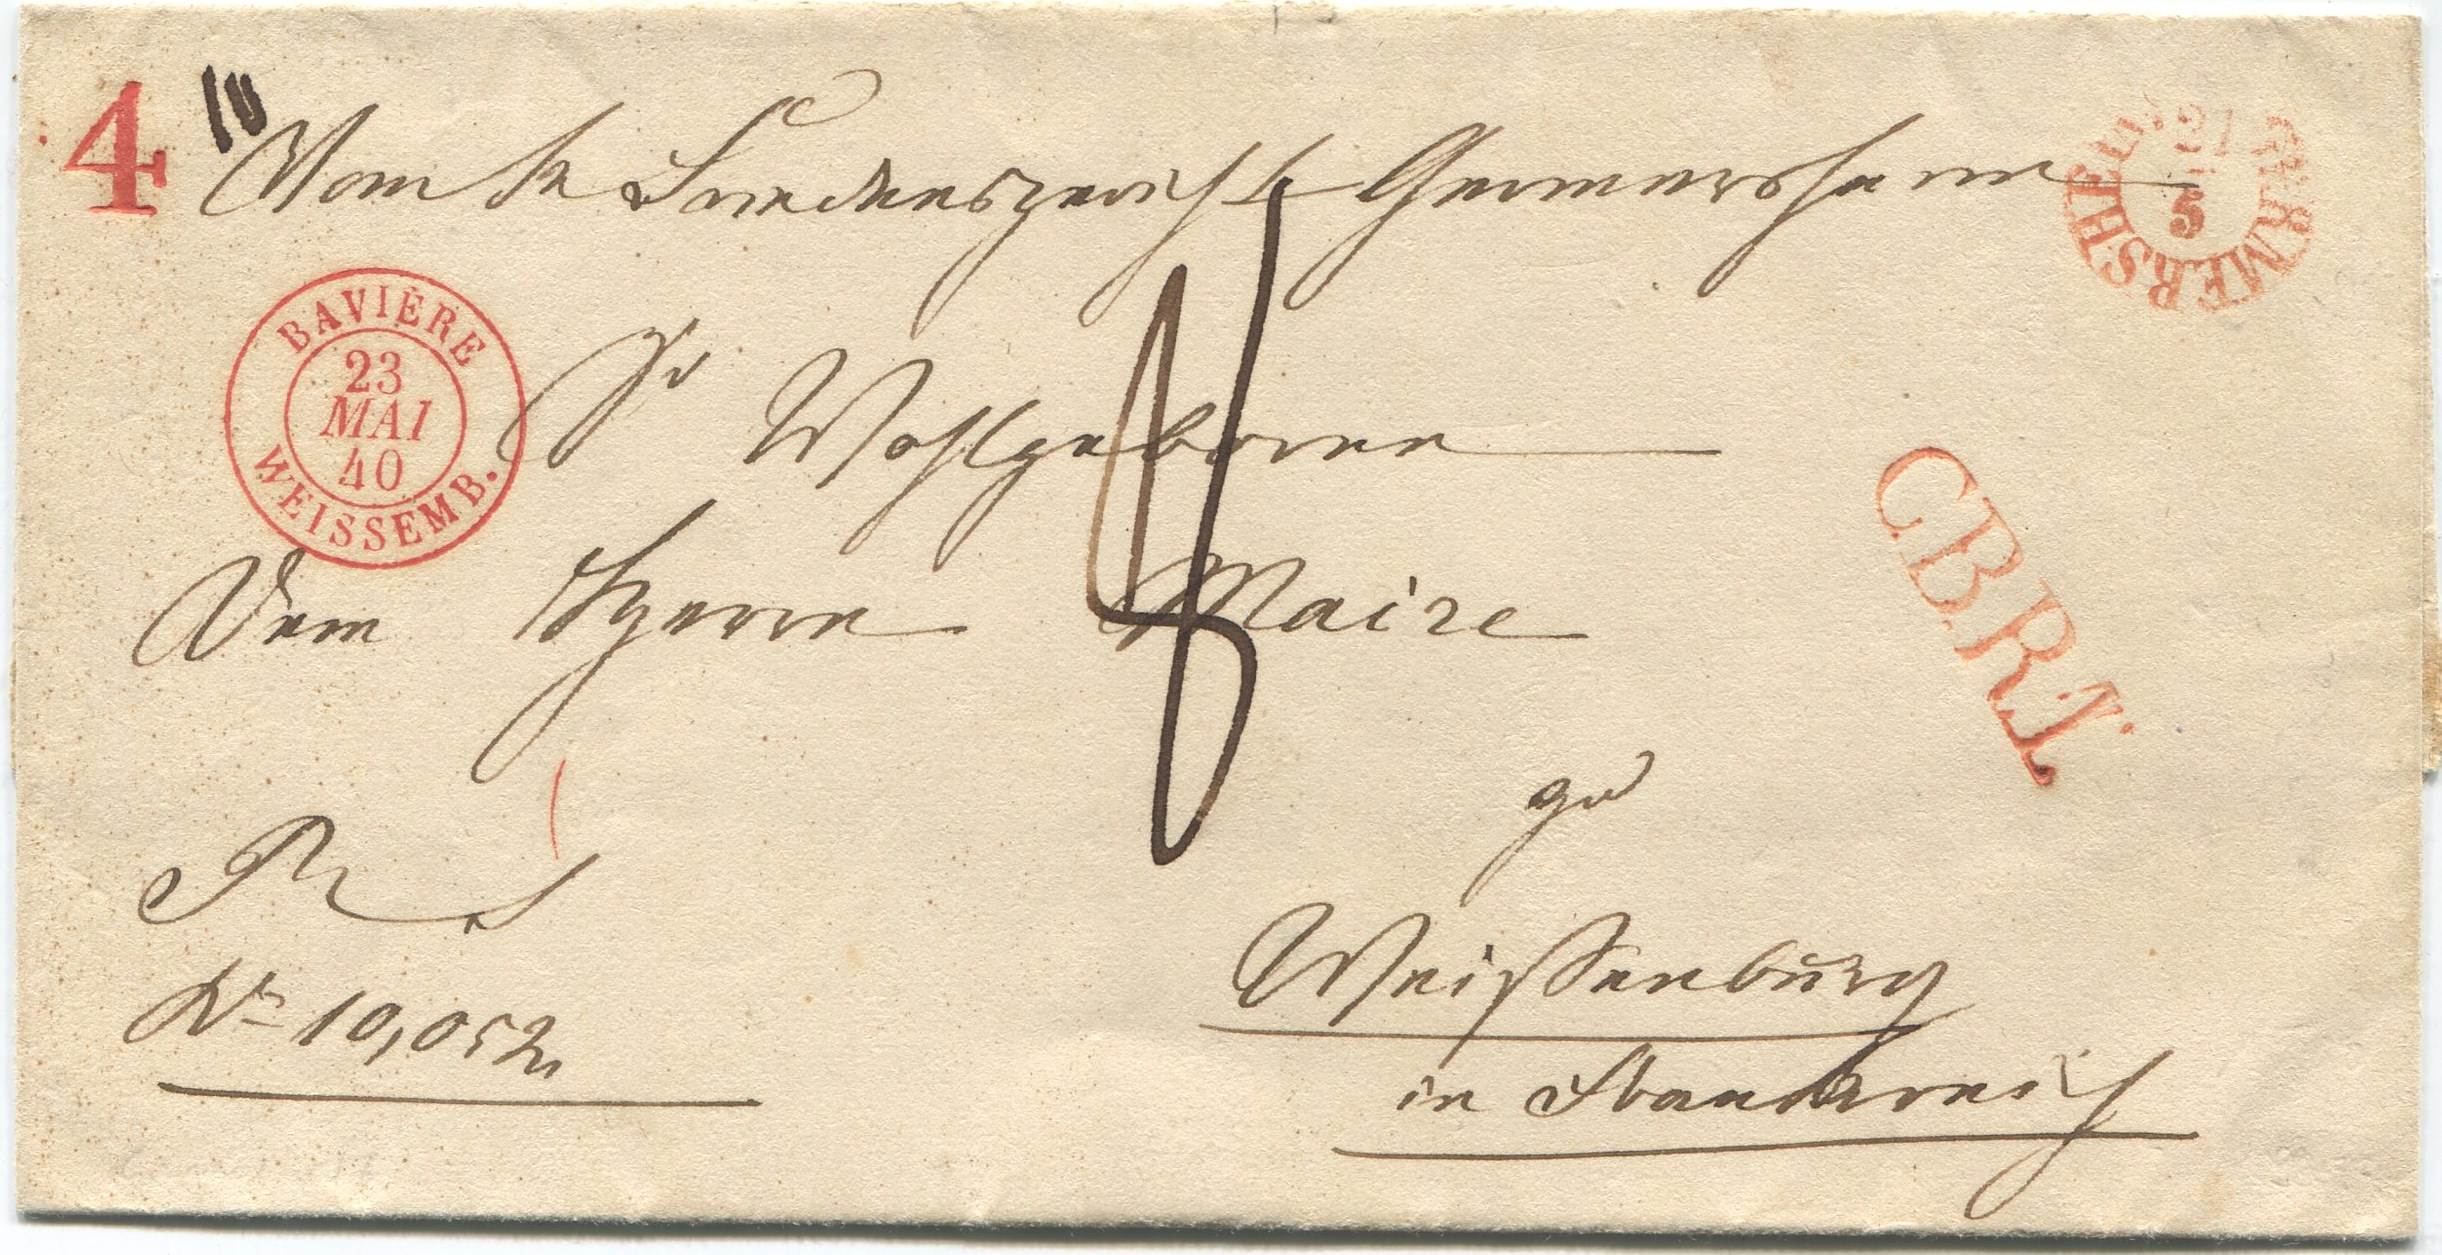 4
Vom k Friedensgericht Germersheim
GERMERSHEIM
21
5
BAVIÈRE
23
MAI
40
WEISSEMB.
Sr Wohlgeboren
C.B.R.1.
Dem Herrn Maire
zu
R S
Nr 10,052
Weissenburg
in Frankreich